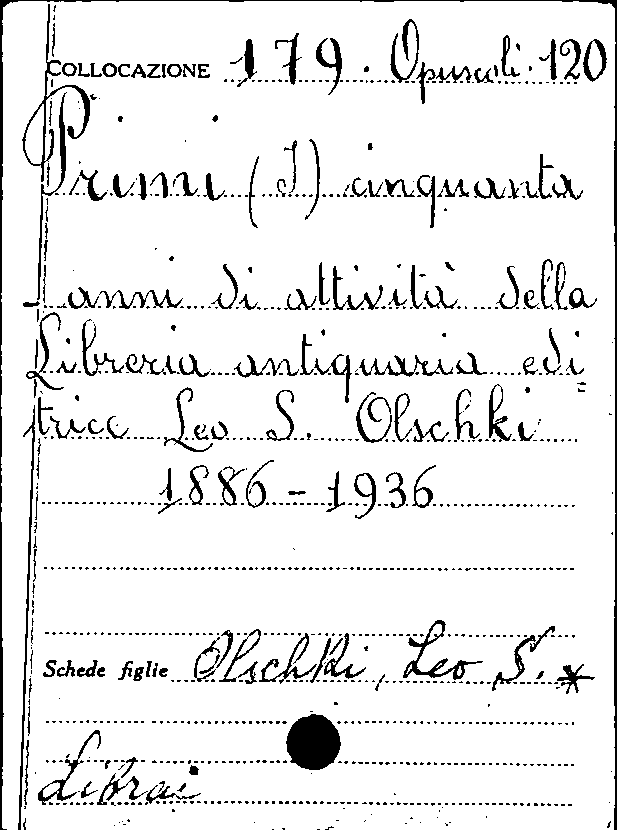 COLLOCAZIONE 179. Opuscoli. 120
Primi (I) cinquanta
anni di attività della
Libreria antiquaria edi=
trice Leo S. Olschki
1886 - 1936
Schede figlie Olschki, Leo S. *
Librai